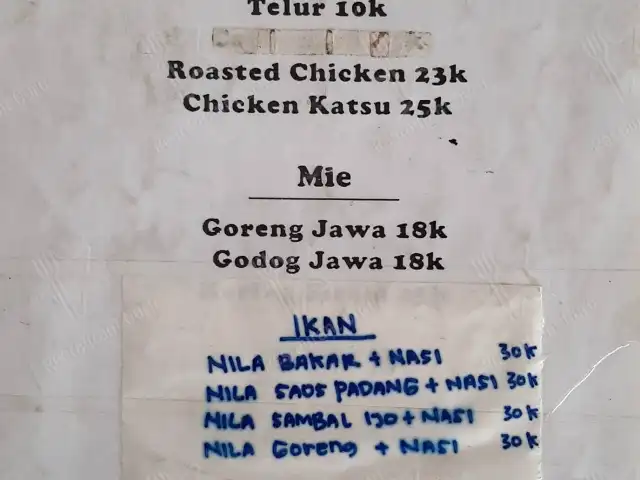 Telur 10k
Roasted Chicken 23k
Chicken Katsu 25k
Mie
Goreng Jawa 18k
Godog Jawa 18k
IKAN
NILA BAKAR + NASI 30K
NILA SAOS PADANG + NASI 30K
NILA SAMBAL IJO + NASI 30K
NILA Goreng + NASI 30K